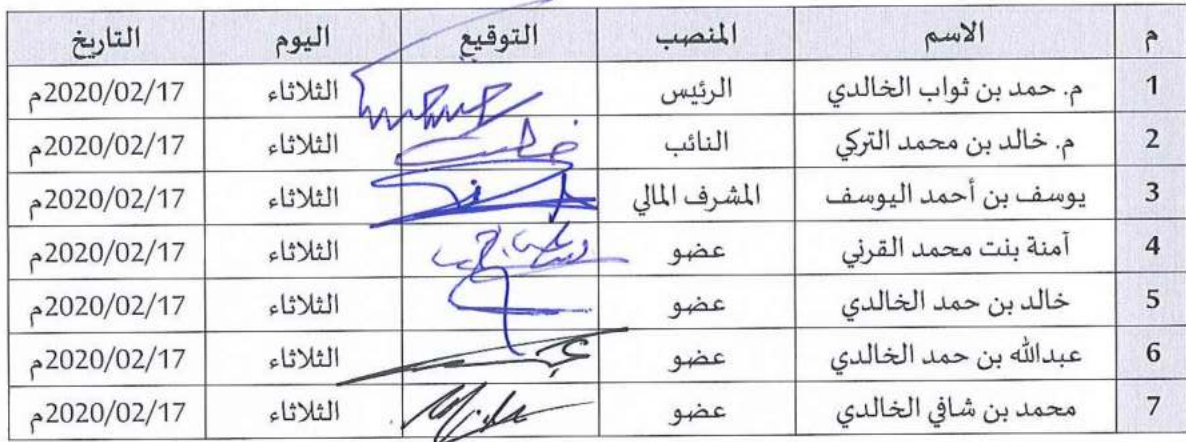 م الاسم المنصب التوقيع اليوم التاريخ
1 م. حمد بن ثواب الخالدي الرئيس الثلاثاء 2020/02/17م
2 م. خالد بن محمد التركي النائب الثلاثاء 2020/02/17م
3 يوسف بن أحمد اليوسف المشرف المالي الثلاثاء 2020/02/17م
4 آمنة بنت محمد القرني عضو الثلاثاء 2020/02/17م
5 خالد بن حمد الخالدي عضو الثلاثاء 2020/02/17م
6 عبدالله بن حمد الخالدي عضو الثلاثاء 2020/02/17م
7 محمد بن شافي الخالدي عضو الثلاثاء 2020/02/17م